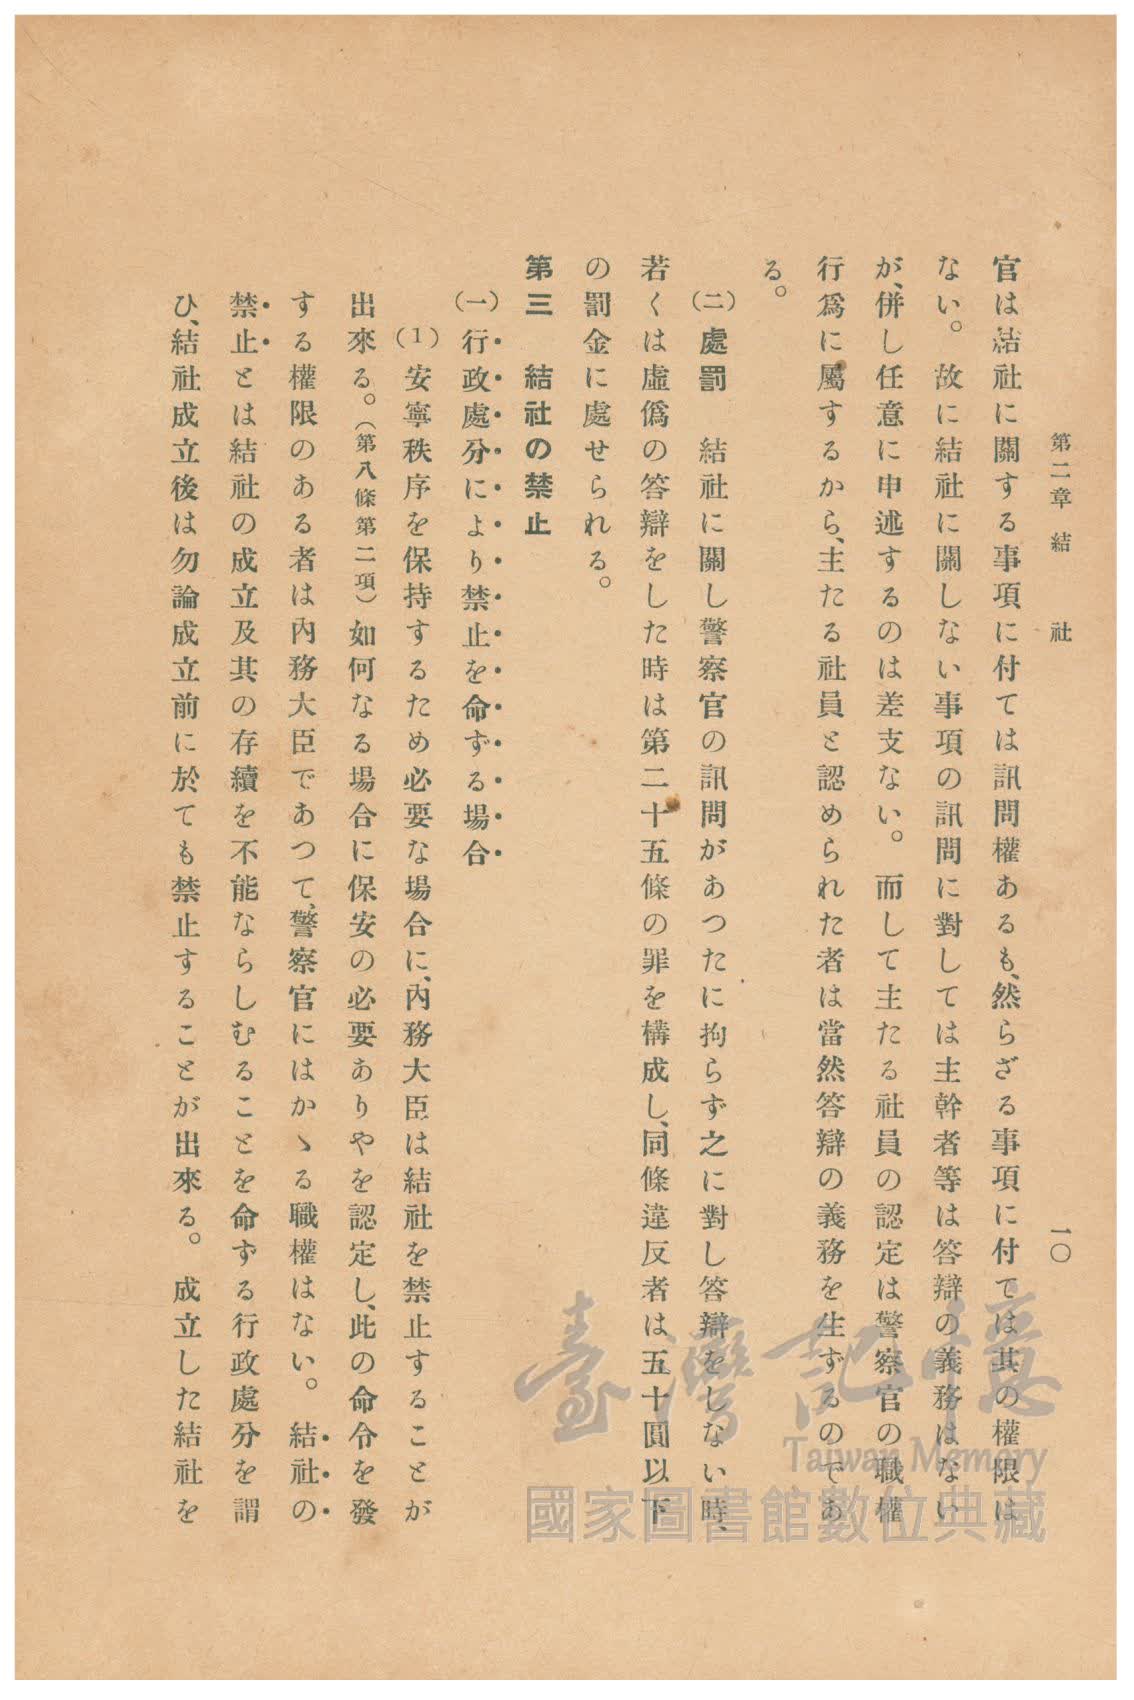 第二章 結社
一〇
官は結社に關する事項に付ては訊問權あるも、然らざる事項に付ては其の權限は
ない。故に結社に關しない事項の訊問に對しては主幹者等は答辯の義務はない
が、併し任意に申述するのは差支ない。而して主たる社員の認定は警察官の職權
行爲に屬するから、主たる社員と認められた者は當然答辯の義務を生ずるのであ
る。
(二) 處罰 結社に關し警察官の訊問があつたに拘らず之に對し答辯をしない時、
若くは虛僞の答辯をした時は第二十五條の罪を構成し、同條違反者は五十圓以下
の罰金に處せられる。
第三 結社の禁止
(一) 行政處分により禁止を命ずる場合
(1) 安寧秩序を保持するため必要な場合に、內務大臣は結社を禁止することが
出來る。(第八條第二項)如何なる場合に保安の必要ありやを認定し、此の命令を發
する權限のある者は內務大臣であつて、警察官にはかゝる職權はない。結社の
禁止とは結社の成立及其の存續を不能ならしむることを命ずる行政處分を謂
ひ、結社成立後は勿論成立前に於ても禁止することが出來る。成立した結社を
臺灣記憶
Taiwan Memory
國家圖書館數位典藏